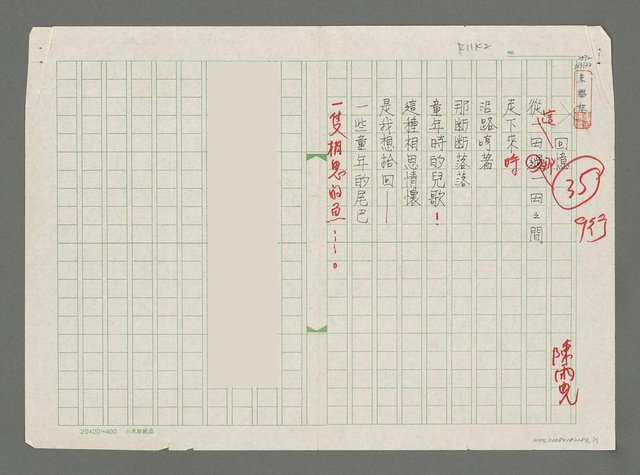 R11K2
NO.
回憶
35
9行
從這一田那一田之間
走下來時
沿路哼著
那斷斷落落
童年時的兒歌！
這種相思情懷
是我想拾回——
一些童年的尾巴
一隻相思的魚……。
陳雨
20X20=400 小木屋紙品